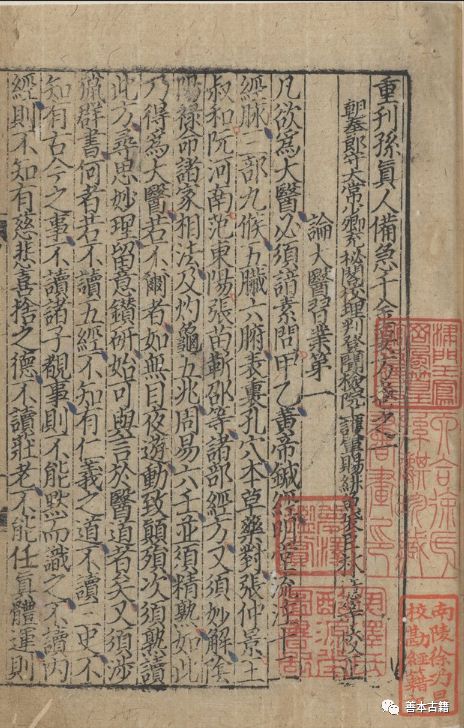 重刊孫真人備急千金要方卷之一
朝奉郎守太常少卿充秘閣校理判登聞檢院上護軍賜緋魚袋臣林億等校正
論大醫習業第一
凡欲為大醫必須諳素問甲乙黃帝鍼經明堂流注十二
經脉三部九候五臟六腑表裏孔穴本草藥對張仲景王
叔和阮河南范東陽張苗靳邵等諸部經方又須妙解陰
陽祿命諸家相法及灼龜五兆周易六壬並須精熟如此
乃得為大醫若不爾者如無目夜遊動致顛殞次須熟讀
此方尋思妙理留意鑽研始可與言於醫道者矣又須涉
獵群書何者若不讀五經不知有仁義之道不讀三史不
知有古今之事不讀諸子覩事則不能默而識之不讀內
經則不知有慈悲喜捨之德不讀莊老不能任真體運則
南陵徐乃昌
校勘經籍記
善本古籍